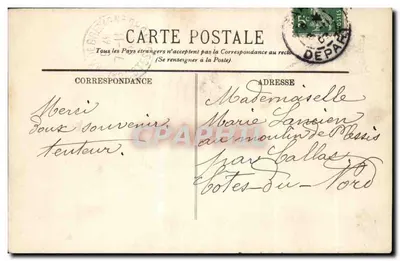 CARTE POSTALE
Tous les Pays étrangers n'acceptent pas la Correspondance au recto
(Se renseigner à la Poste)
CORRESPONDANCE
ADRESSE
Merci
doux souvenir
Mademoiselle
Marie
au moulin de
par Callac
Côtes-du-Nord
DÉPART
CPARAMA